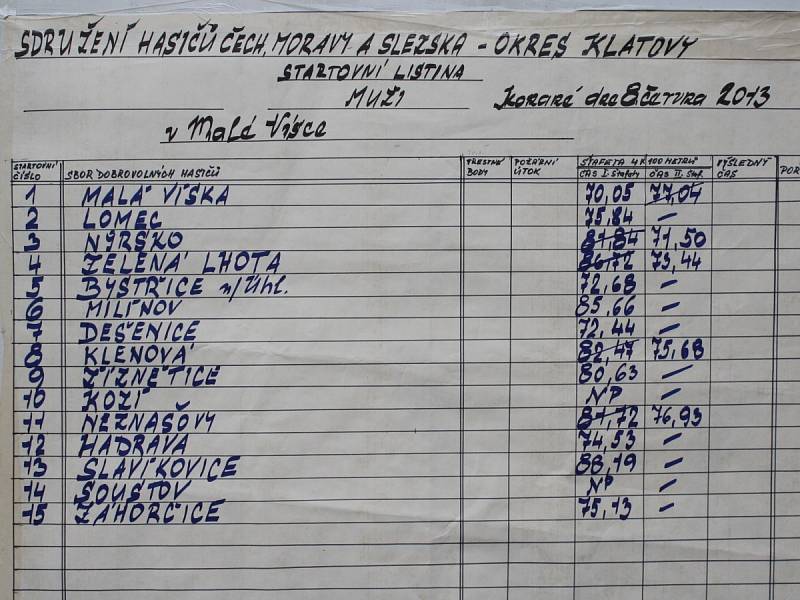 SDRUŽENÍ HASIČŮ ČECH, MORAVY A SLEZSKA - OKRES KLATOVY
STARTOVNÍ LISTINA
MUŽI konané dne 8. června 2013
v Malé Víſce
STARTOVNÍ ČÍSLO SBOR DOBROVOLNÝCH HASIČŮ TRESTNÉ BODY POŽÁRNÍ ÚTOK ŠTAFETA 4 x 100 METRŮ VÝSLEDNÝ ČAS POŘ
ČAS I. štafety ČAS II. štaf.
1 MALÁ VÍSKA 70,05 77,04
2 LOMEC 75,84 —
3 NÝRSKO 81,84 71,50
4 ZELENÁ LHOTA 86,72 73,44
5 BYSTŘICE n/Úhl. 72,68 —
6 MILÍNOV 85,66 —
7 DEŠENICE 72,44 —
8 KLENOVÁ 82,47 75,68
9 ŽIZNĚTICE 80,63 —
10 KOZÍ NP —
11 NEZNAŠOVY 81,72 76,93
12 HADRAVA 74,53 —
13 SLAVÍKOVICE 88,19 —
14 SOUSTOV NP —
15 ZÁHORČICE 75,13 —